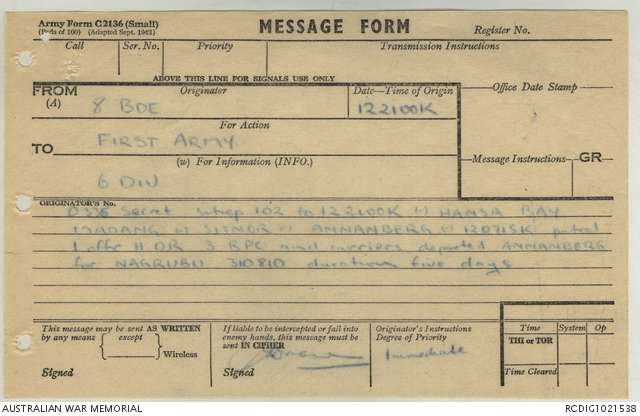 Army Form C2136 (Small)
(Pads of 100) (Adapted Sept. 1942)
MESSAGE FORM
Register No.
Call Ser. No. Priority Transmission Instructions
ABOVE THIS LINE FOR SIGNALS USE ONLY
FROM (A) Originator Date—Time of Origin Office Date Stamp
8 BDE 122100K
For Action
TO FIRST ARMY
(w) For Information (INFO.) Message Instructions GR
6 DIV
ORIGINATOR'S No.
Secret sitrep 102 to 122100K (.) HANSA BAY
MADANG (.) SITNOR (.) ANNANBERG (.) 120715K patrol
1 offr 11 OR 3 RPC and carriers departed ANNANBERG
for NAGRUBU 310810 duration five days
This message may be sent AS WRITTEN
by any means (except)
Wireless
Signed
If liable to be intercepted or fall into
enemy hands, this message must be
sent IN CIPHER
Signed
Originator's Instructions
Degree of Priority
Immediate
Time System Op
THI or TOR
Time Cleared
AUSTRALIAN WAR MEMORIAL RCDIG1021538